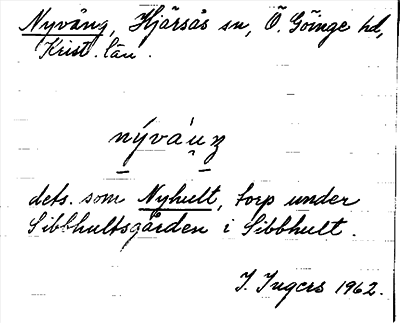 Nyväng, Hjärsås sn, Ö. Göinge hd,
Krist. län.
nývá̀ṉʒ
dets. som Nyhult, torp under
Sibbhultsgården i Sibbhult.
I. Ingers 1962.